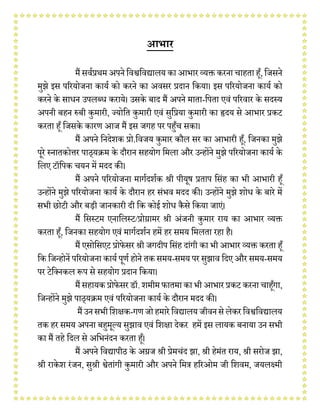 आभार
मैं सर्वप्रथम अपने विश्वविद्यालय का आभार व्यक्त करना चाहता हूँ, जिसने
मुझे इस परियोजना कार्य को करने का अवसर प्रदान किया। इस परियोजना कार्य को
करने के साधन उपलब्ध कराये। उसके बाद मैं अपने माता-पिता एवं परिवार के सदस्य
अपनी बहन रुबी कुमारी, ज्योति कुमारी एवं सुप्रिया कुमारी का ह्रदय से आभार प्रकट
करता हूँ जिसके कारण आज मैं इस जगह पर पहुँच सका।
मैं अपने निदेशक प्रो.विजय कुमार कौल सर का आभारी हूँ, जिनका मुझे
पूरे स्नातकोत्तर पाठ्यक्रम के दौरान सहयोग मिला और उन्होंने मुझे परियोजना कार्य के
लिए टॉपिक चयन में मदद की।
मैं अपने परियोजना मार्गदर्शक श्री पीयूष प्रताप सिंह का भी आभारी हूँ
उन्होंने मुझे परियोजना कार्य के दौरान हर संभव मदद की। उन्होंने मुझे शोध के बारे में
सभी छोटी और बड़ी जानकारी दी कि कोई शोध कैसे किया जाएं।
मैं सिस्टम एनालिस्ट/प्रोग्रामर श्री अंजनी कुमार राय का आभार व्यक्त
करता हूँ, जिनका सहयोग एवं मार्गदर्शन हमें हर समय मिलता रहा है।
मैं एसोसिएट प्रोफेसर श्री जगदीप सिंह दांगी का भी आभार व्यक्त करता हूँ
कि जिन्होनें परियोजना कार्य पूर्ण होने तक समय-समय पर सुझाव दिए और समय-समय
पर टेक्निकल रूप से सहयोग प्रदान किया।
मैं सहायक प्रोफेसर डॉ. शमीम फातमा का भी आभार प्रकट करना चाहूँगा,
जिन्होंने मुझे पाठ्यक्रम एवं परियोजना कार्य के दौरान मदद की।
मैं उन सभी शिक्षक-गण जो हमारे विद्यालय जीवन से लेकर विश्वविद्यालय
तक हर समय अपना बहुमूल्य सुझाव एवं शिक्षा देकर हमें इस लायक बनाया उन सभी
का मैं तहे दिल से अभिनंदन करता हूँ।
मैं अपने विद्यापीठ के अग्रज श्री प्रेमचंद झा, श्री हेमंत राय, श्री सरोज झा,
श्री राकेश रंजन, सुश्री श्वेतांगी कुमारी और अपने मित्र हरिओम जी शिवम, जयलक्ष्मी